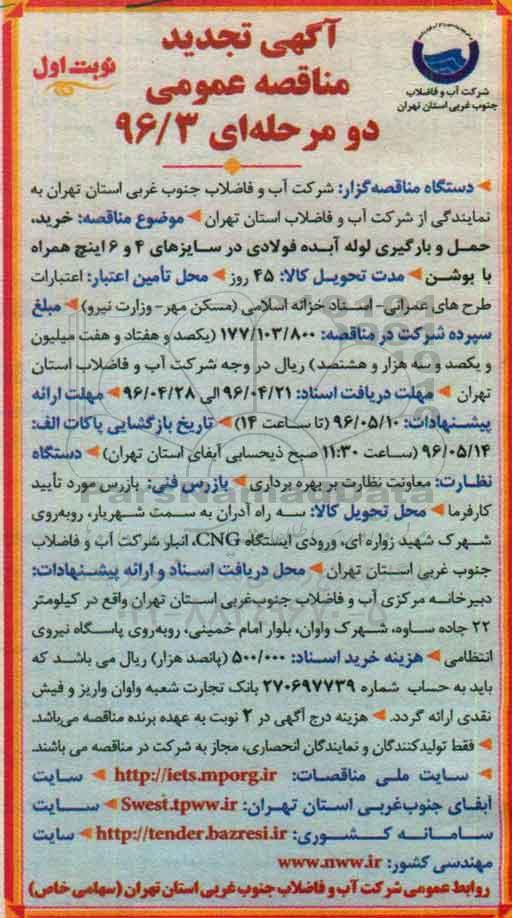 آگهی تجدید
مناقصه عمومی
دو مرحله‌ای ۹۶/۳
نوبت اول
شرکت آب و فاضلاب
جنوب غربی استان تهران
دستگاه مناقصه‌گزار: شرکت آب و فاضلاب جنوب غربی استان تهران به
نمایندگی از شرکت آب و فاضلاب استان تهران موضوع مناقصه: خرید،
حمل و بارگیری لوله آبده فولادی در سایزهای ۴ و ۶ اینچ همراه
با بوشن مدت تحویل کالا: ۴۵ روز محل تأمین اعتبار: اعتبارات
طرح های عمرانی- اسناد خزانه اسلامی (مسکن مهر- وزارت نیرو) مبلغ
سپرده شرکت در مناقصه: ۱۷۷/۱۰۳/۸۰۰ (یکصد و هفتاد و هفت میلیون
و یکصد و سه هزار و هشتصد) ریال در وجه شرکت آب و فاضلاب استان
تهران مهلت دریافت اسناد: ۹۶/۰۴/۲۱ الی ۹۶/۰۴/۲۸ مهلت ارائه
پیشنهادات: ۹۶/۰۵/۱۰ (تا ساعت ۱۴) تاریخ بازگشایی پاکات الف:
۹۶/۰۵/۱۴ (ساعت ۱۱:۳۰ صبح ذیحسابی آبفای استان تهران) دستگاه
نظارت: معاونت نظارت بر بهره برداری بازرس فنی: بازرس مورد تأیید
کارفرما محل تحویل کالا: سه راه آدران به سمت شهریار، روبه‌روی
شهرک شهید زواره ای، ورودی ایستگاه CNG، انبار شرکت آب و فاضلاب
جنوب غربی استان تهران محل دریافت اسناد و ارائه پیشنهادات:
دبیرخانه مرکزی آب و فاضلاب جنوب‌غربی استان تهران واقع در کیلومتر
۲۲ جاده ساوه، شهرک واوان، بلوار امام خمینی، روبه‌روی پاسگاه نیروی
انتظامی هزینه خرید اسناد: ۵۰۰/۰۰۰ (پانصد هزار) ریال می باشد که
باید به حساب شماره ۲۷۰۶۹۷۷۳۹ بانک تجارت شعبه واوان واریز و فیش
نقدی ارائه گردد. هزینه درج آگهی در ۲ نوبت به عهده برنده مناقصه می‌باشد.
فقط تولیدکنندگان و نمایندگان انحصاری، مجاز به شرکت در مناقصه می باشند.
سایت ملی مناقصات: http://iets.mporg.ir سایت
آبفای جنوب‌غربی استان تهران: Swest.tpww.ir سایت
سامانه کشوری: http://tender.bazresi.ir سایت
مهندسی کشور: www.nww.ir
روابط عمومی شرکت آب و فاضلاب جنوب غربی استان تهران (سهامی خاص)
ParsNamadData